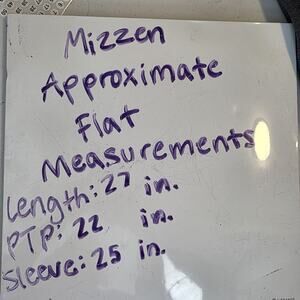 Mizzen
Approximate
Flat
Measurements
Length: 27 in.
PTP: 22 in.
Sleeve: 25 in.